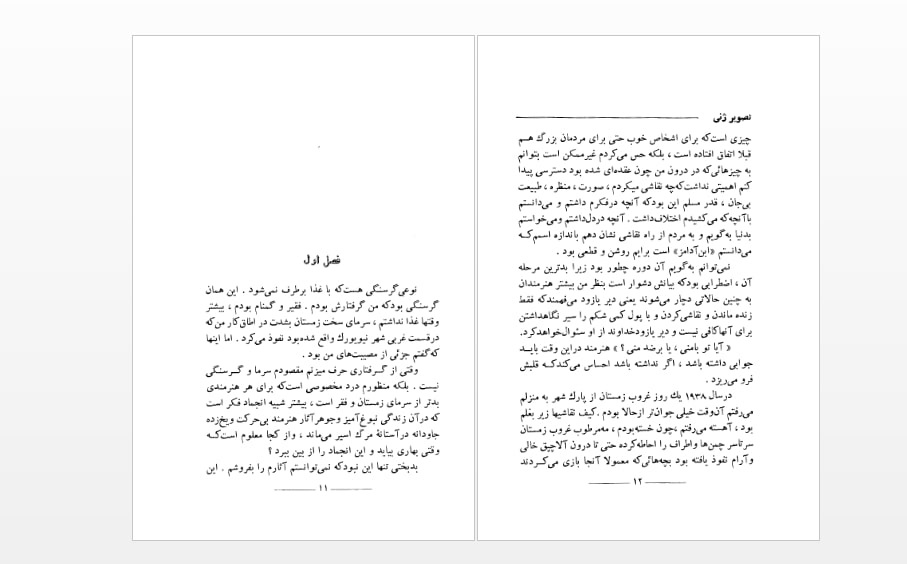 فصل اول
نوعی‌گرسنگی هست‌که با غذا برطرف نمی‌شود . این همان
گرسنگی بودکه من گرفتارش بودم . فقیر و گمنام بودم ، بیشتر
وقتها غذا نداشتم ، سرمای سخت زمستان بشدت در اطاق‌کار من‌که
درقسمت غربی شهر نیویورك واقع شده‌بود نفوذ می‌کرد . اما اینها
که‌گفتم جزئی از مصیبت‌های من بود .
وقتی از گـرفتاری حرف میزنم مقصودم سرما و گـرسنگی
نیست . بلکه منظورم درد مخصوصی است‌که برای هر هنرمندی
بدتر از سرمای زمستان و فقر است ، بیشتر شبیه انجماد فکر است
که درآن زندگی نبوغ‌آمیز وجوهرآثار هنرمند بی‌حرکت ویخ‌زده
جاودانه درآستانهٔ مرگ اسیر می‌ماند ، واز کجا معلوم است‌کـه
وقتی بهاری بیاید و این انجماد را از بین ببرد ؟
بدبختی تنها این نبودکه نمی‌توانستم آثارم را بفروشم . این
۱۱
تصویر ژنی
چیزی است‌که برای اشخاص خوب حتی برای مردمان بزرگ هـم
قبلا اتفاق افتاده است ، بلکه حس می‌کردم غیرممکن است بتوانم
به چیزهائی‌که در درون من چون عقده‌ای شده بود دسترسی پیدا
کنم اهمیتی نداشت‌که‌چه نقاشی میکردم ، صورت ، منظره ، طبیعت
بی‌جان ، قدر مسلم این بودکه آنچه درفکرم داشتم و می‌دانستم
باآنچه‌که می‌کشیدم اختلاف‌داشت . آنچه دردل‌داشتم ومی‌خواستم
بدنیا به‌گویم و به مردم از راه نقاشی نشان دهم باندازه اسمم‌کـه
می‌دانستم «ابن‌آدامز» است برایم روشن و قطعی بود .
نمی‌توانم به‌گویم آن دوره چطور بود زیرا بدترین مرحله
آن ، اضطرابی بودکه بیانش دشوار است بنظر من بیشتر هنرمندان
به چنین حالاتی دچار می‌شوند یعنی دیر یازود می‌فهمندکه فقط
زنده ماندن و نقاشی‌کردن و یا پول کمی شکم را سیر نگاهداشتن
برای آنهاکافی نیست و دیر یازودخداوند از او سئوال‌خواهدکرد.
« آیا تو بامنی ، یا برضد منی ؟ » هنرمند دراین وقت بایـد
جوابی داشته باشد ، اگر نداشته باشد احساس می‌کندکـه قلبش
فرو می‌ریزد .
درسال ۱۹۳۸ یك روز غروب زمستان از پارك شهر به منزلم
می‌رفتم آن‌وقت خیلی جوان‌تر ازحالا بودم .کیف نقاشیها زیر بغلم
بود ، آهسته می‌رفتم ،چون خسته‌بودم ، مه‌مرطوب غروب زمستان
سرتاسر چمن‌ها واطراف را احاطه‌کرده حتی تا درون آلاچیق خالی
وآرام نفوذ یافته بود بچه‌هائی‌که معمولا آنجا بازی می‌کـردند
۱۲